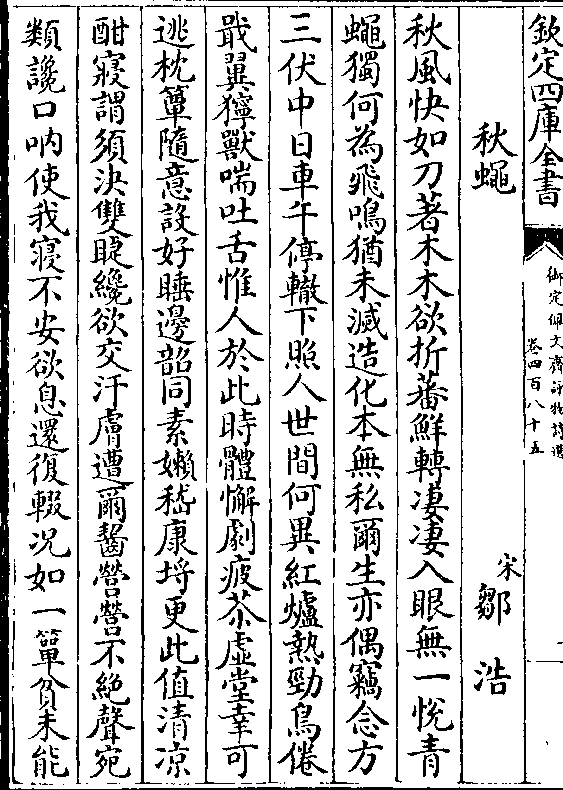 欽定四庫全書
御定佩文齋詠物詩選
卷四百八十五
秋蠅
宋鄒浩
秋風快如刀著木木欲折蕃鮮轉凄凄入眼無一悅青
蠅獨何為飛鳴猶未滅造化本無私爾生亦偶竊念方
三伏中日車午停轍下照人世間何異紅爐熱勁鳥倦
戢翼獰獸喘吐舌惟人於此時體懈劇疲苶虛堂幸可
逃枕簟隨意設好睡邊韶同素嬾嵇康埒更此值清凉
酣寢謂須決雙睫纔欲交汗膚遭爾齧營營不絶聲宛
類讒口吶使我寢不安欲息還復輟况如一簞貧未能